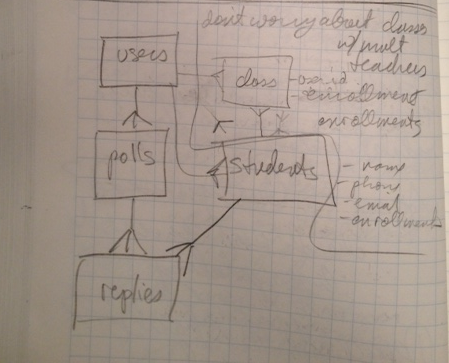 don't worry about classes
w/ mult
teachers
users
class
- userid
- enrollment
enrollments
polls
students
- name
- phone
- email
- enrollments
replies